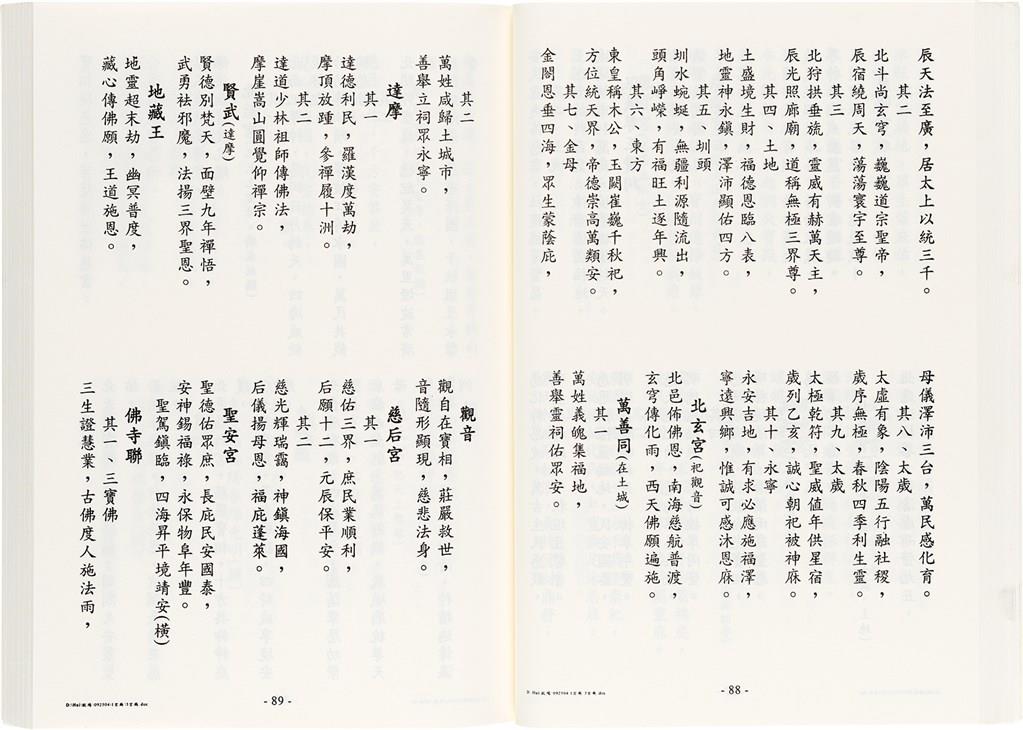 辰天法至廣，居太上以統三千。
其二
北斗尚玄穹，巍巍道宗聖帝，
辰宿繞周天，蕩蕩寰宇至尊。
其三
北狩拱垂旒，靈威有赫萬天主，
辰光照廊廟，道稱無極三界尊。
其四、土地
土盛境生財，福德恩臨八表，
地靈神永鎮，澤沛顯佑四方。
其五、圳頭
圳水蜿蜒，無疆利源隨流出，
頭角崢嶸，有福旺土逐年興。
其六、東方
東皇稱木公，玉闕崔巍千秋祀，
方位統天界，帝德崇高萬類安。
其七、金母
金闕恩垂四海，眾生蒙蔭庇，
母儀澤沛三台，萬民感化育。
其八、太歲
太虛有象，陰陽五行融社稷，
歲序無極，春秋四季利生靈。
其九、太歲
太極乾符，聖威值年供星宿，
歲列乙亥，誠心朝祀被神庥。
其十、永寧
永安吉地，有求必應施福澤，
寧遠興鄉，惟誠可感沐恩庥。
北玄宮(祀觀音)
北邑佈佛恩，南海慈航普渡，
玄穹傳化雨，西天佛願遍施。
萬善同(在土城)
其一
萬姓義魄集福地，
善舉靈祠佑眾安。
- 88 -
其二
萬姓咸歸土城市，
善舉立祠眾永寧。
達摩
其一
達德利民，羅漢度萬劫，
摩頂放踵，參禪履十洲。
其二
達道少林祖師傳佛法，
摩崖嵩山圓覺仰禪宗。
賢武(達摩)
賢德別梵天，面壁九年禪悟，
武勇祛邪魔，法揚三界聖恩。
地藏王
地靈超末劫，幽冥普度，
藏心傳佛願，王道施恩。
觀音
觀自在寶相，莊嚴救世，
音隨形顯現，慈悲法身。
慈后宮
其一
慈佑三界，庶民業順利，
后願十二，元辰保平安。
其二
慈光輝瑞靄，神鎮海國，
后儀揚母恩，福庇蓬萊。
聖安宮
聖德佑眾庶，長庇民安國泰，
安神錫福祿，永保物阜年豐。
聖駕鎮臨，四海昇平境靖安(橫)
佛寺聯
其一、三寶佛
三生證慧業，古佛度人施法雨，
- 89 -